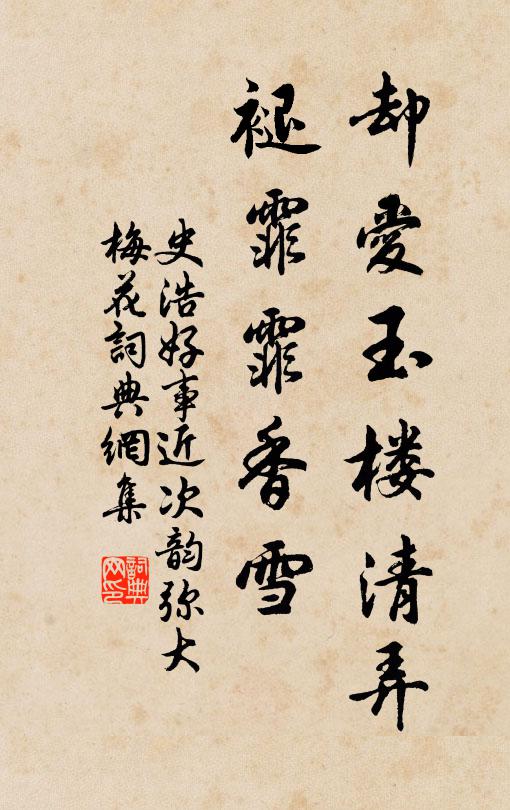 却愛玉楼清弄
褪霏霏香雪
史浩好事近次韵弥大
梅花詞典網集
詞典
网印